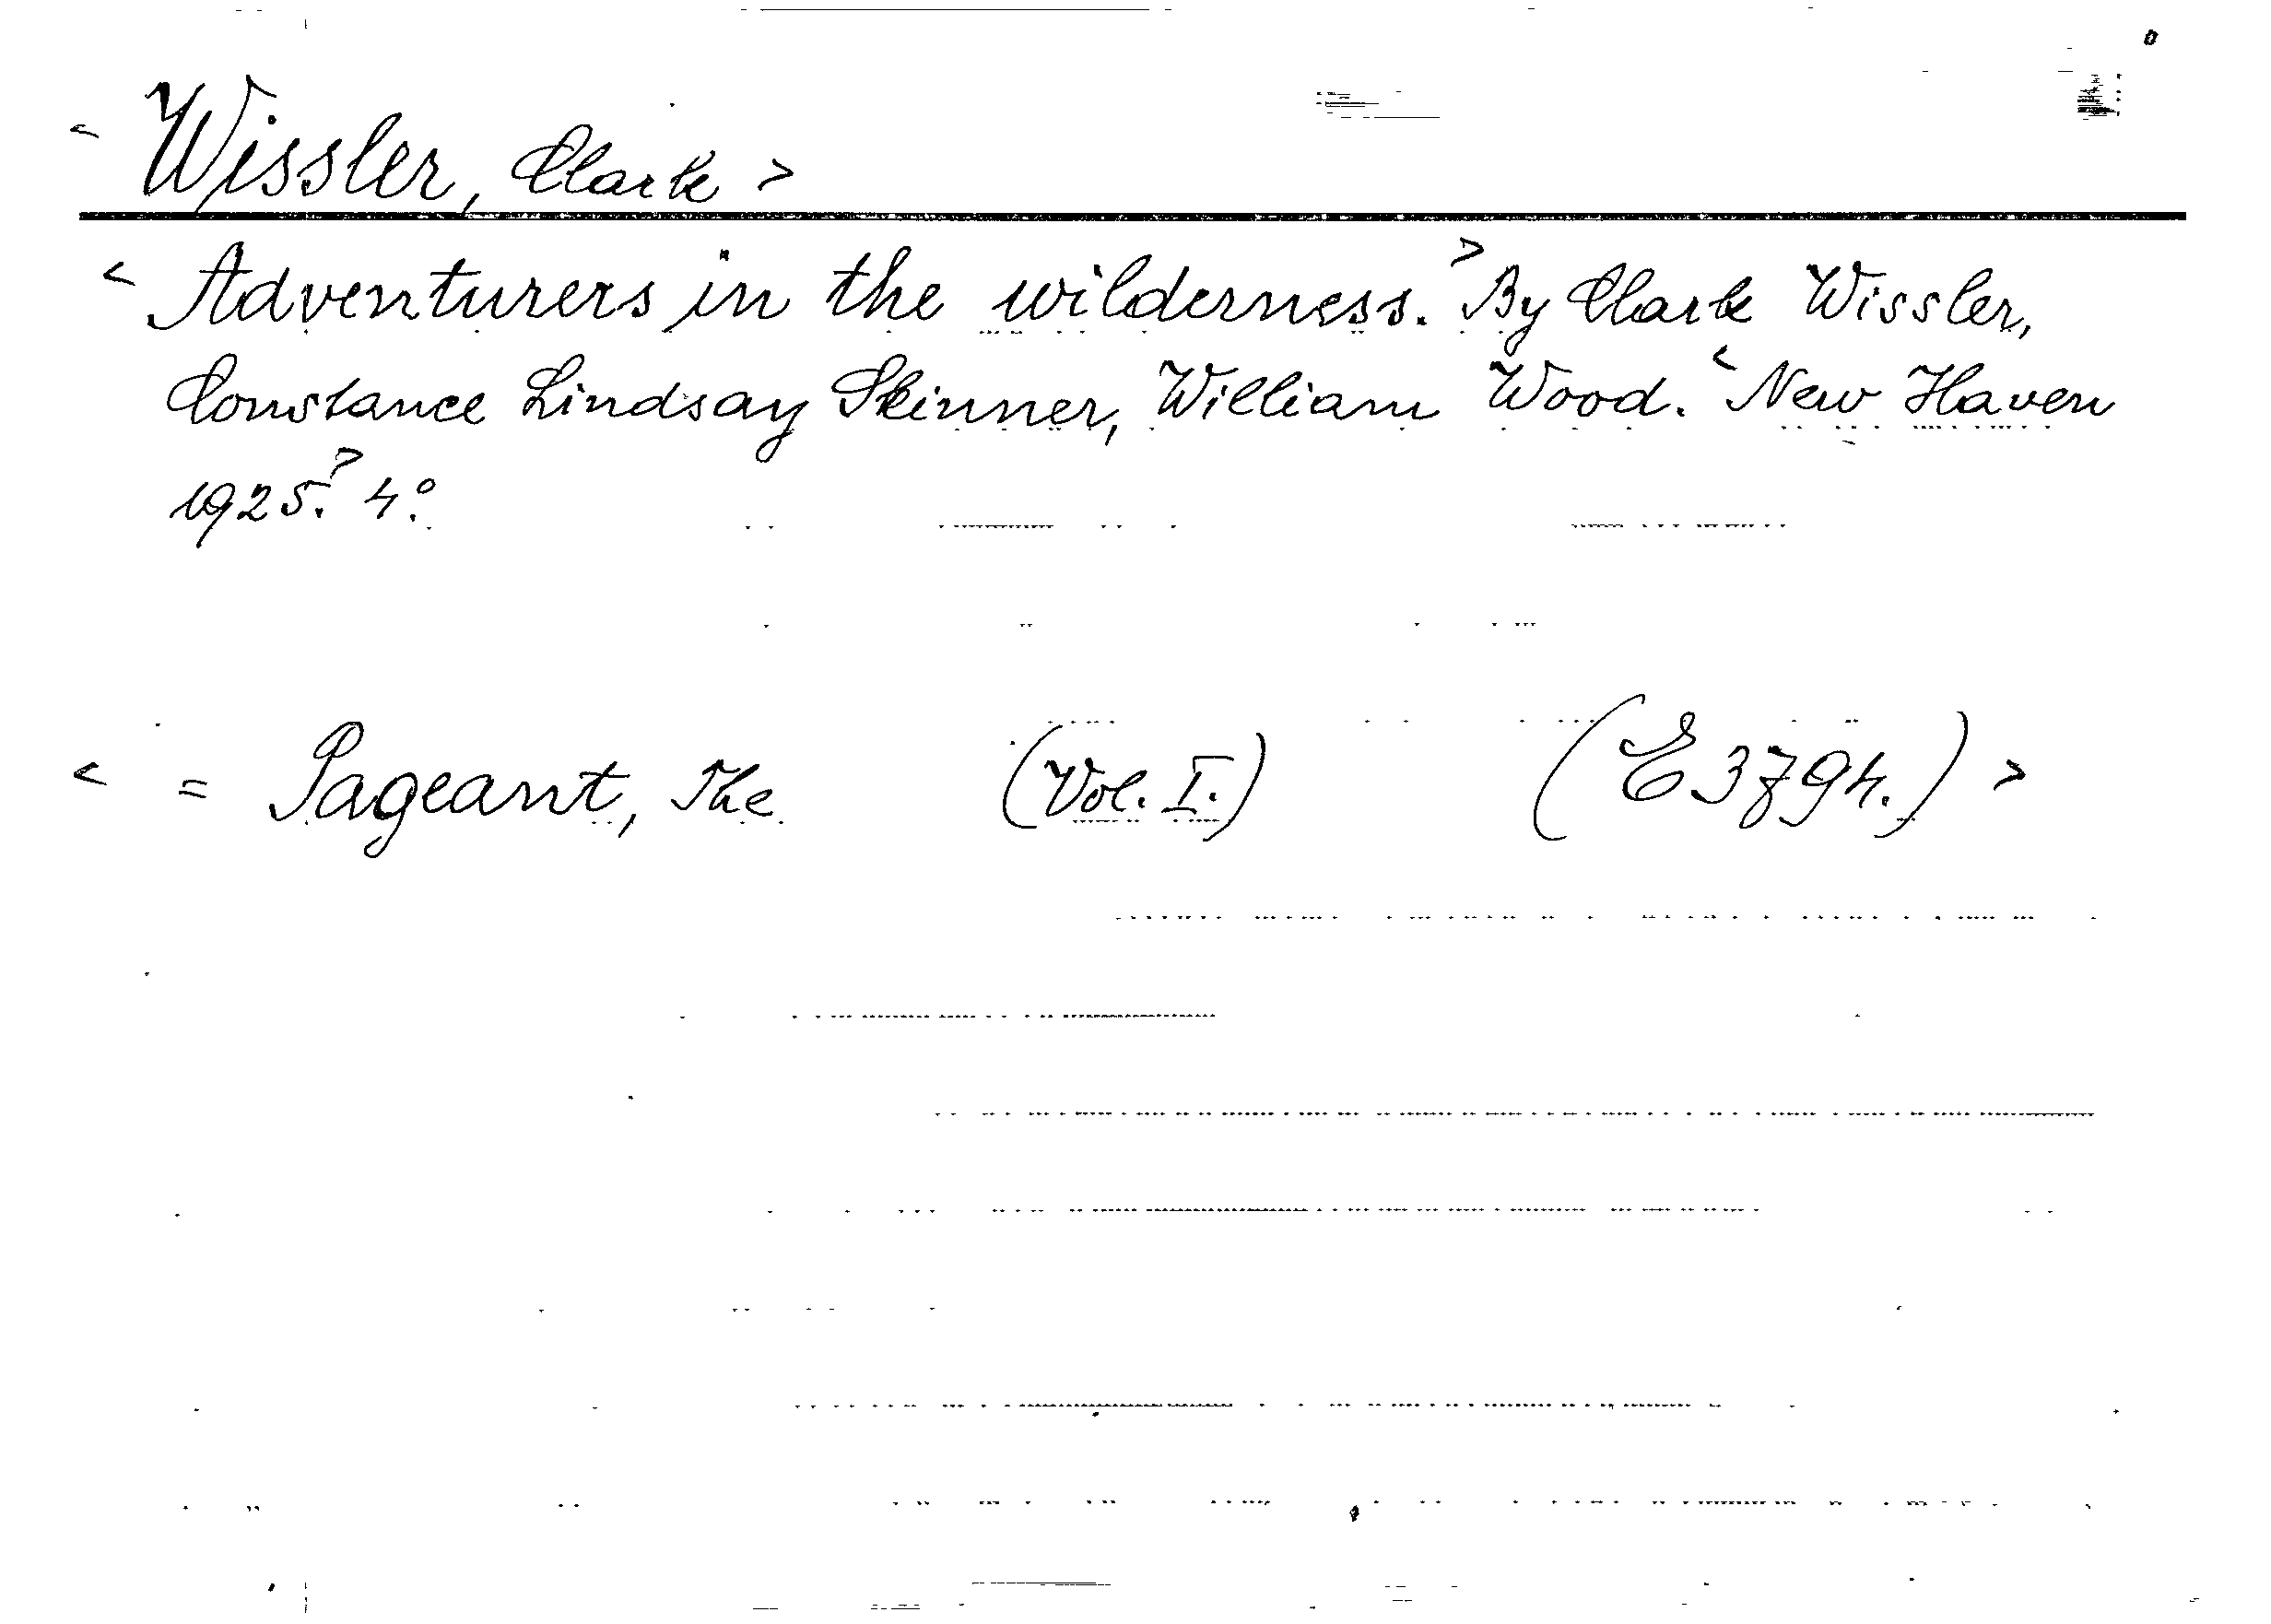 < Wissler, Clark >
< Adventurers in the wilderness. > By Clark Wissler,
Constance Lindsay Skinner, William Wood. < New Haven
1925. > 4°.
< = Pageant, The (Vol. I.) (E 3794.) >